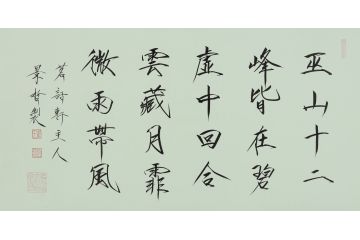 巫山十二
峰皆在碧
虛中回合
雲藏月霏
微雨帶風
茗詩軒主人
景哲製